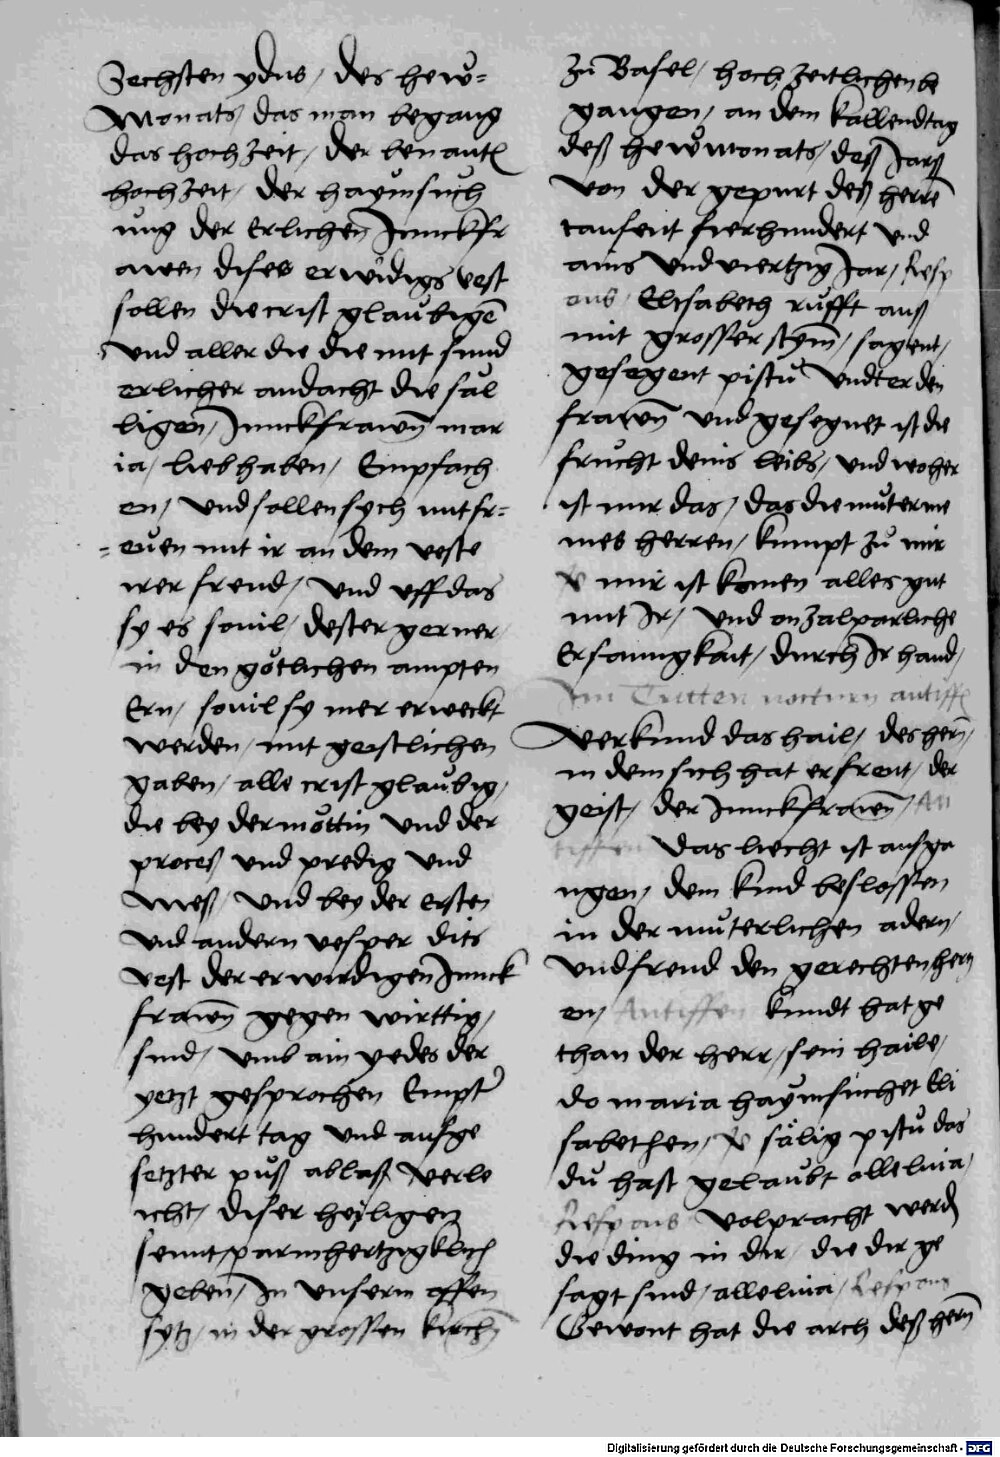 Zechsten ydus / des hew=
Monats / das man begang
das hoch Zeit / der benantē
hochzeit / der haymsuch
ung der Erlichen Junckfr
awen dises erwidigs vest
sollen die crist glaubigē
und aller die die mit sund
erlicher andacht die säl
ligen / Junckfrawen mar
ia / lieb haben / Empfach
en / und sollen sych mit fr=
=euen mit ir an dem veste
irer freud / und uff das
sy es sovil / dester gerner
in den götlichen ampten
Ern / sovil sy mer erweckt
werden / mit geistlichen
gaben / alle crist glaubig /
die bey der mottin und der
proceß und predig und
Meß / und bey der ersten
und andern vesper dits
vest der erwirdigen Junck
frawn gegen wirttig /
sind / umb ain yedes der
yetzt gesprochen Empter
hundert tag und aufge
setzter puß ablaß verle
icht / diser heyligen
senntparmhertzigklich
geben / In unserm offen
sytz / in der grossen kirchn
Zu Basel / hoch zeitlichen be
gangen / an dem Kallendtag
deß hewmonats / deß Jarß
von der gepurt deß herrē
tausent fierhundert und
ains und viertzig Jar / Resp
ons / Elisabeth rufft auß
mit grosser stym̄ / sagent /
gesegent pistu undter den
frawn und gesegnet ist die
frucht deins leibs / und woher
ist mir das / das die muter mei
nes herren / kumpt zu mir
mir ist komen alles gut
mit Ir / und onzalparliche
Ersamigkait / durch Ir hand /
Im Tritten nocturn antiffē
Verkund das hail / des hern /
in dem sich hat erfreut / der
geist / der Junckfrawen / An
tiffen das liecht ist aufga
ngen / dem kind beslossten
in der muterlichen adern /
und freud den gerechten hertz
en / Antiffen kundt hat ge
than der herr / sein haile /
do maria haymsuchet Eli
sabethen / sälig pistu das
du hast gelaubt alleluia /
Respons Volpracht werd
die ding in dir / die dir ge
sagt sind / alleluia / Respons
Gewont hat die arch deß hern
Digitalisierung gefördert durch die Deutsche Forschungsgemeinschaft - DFG